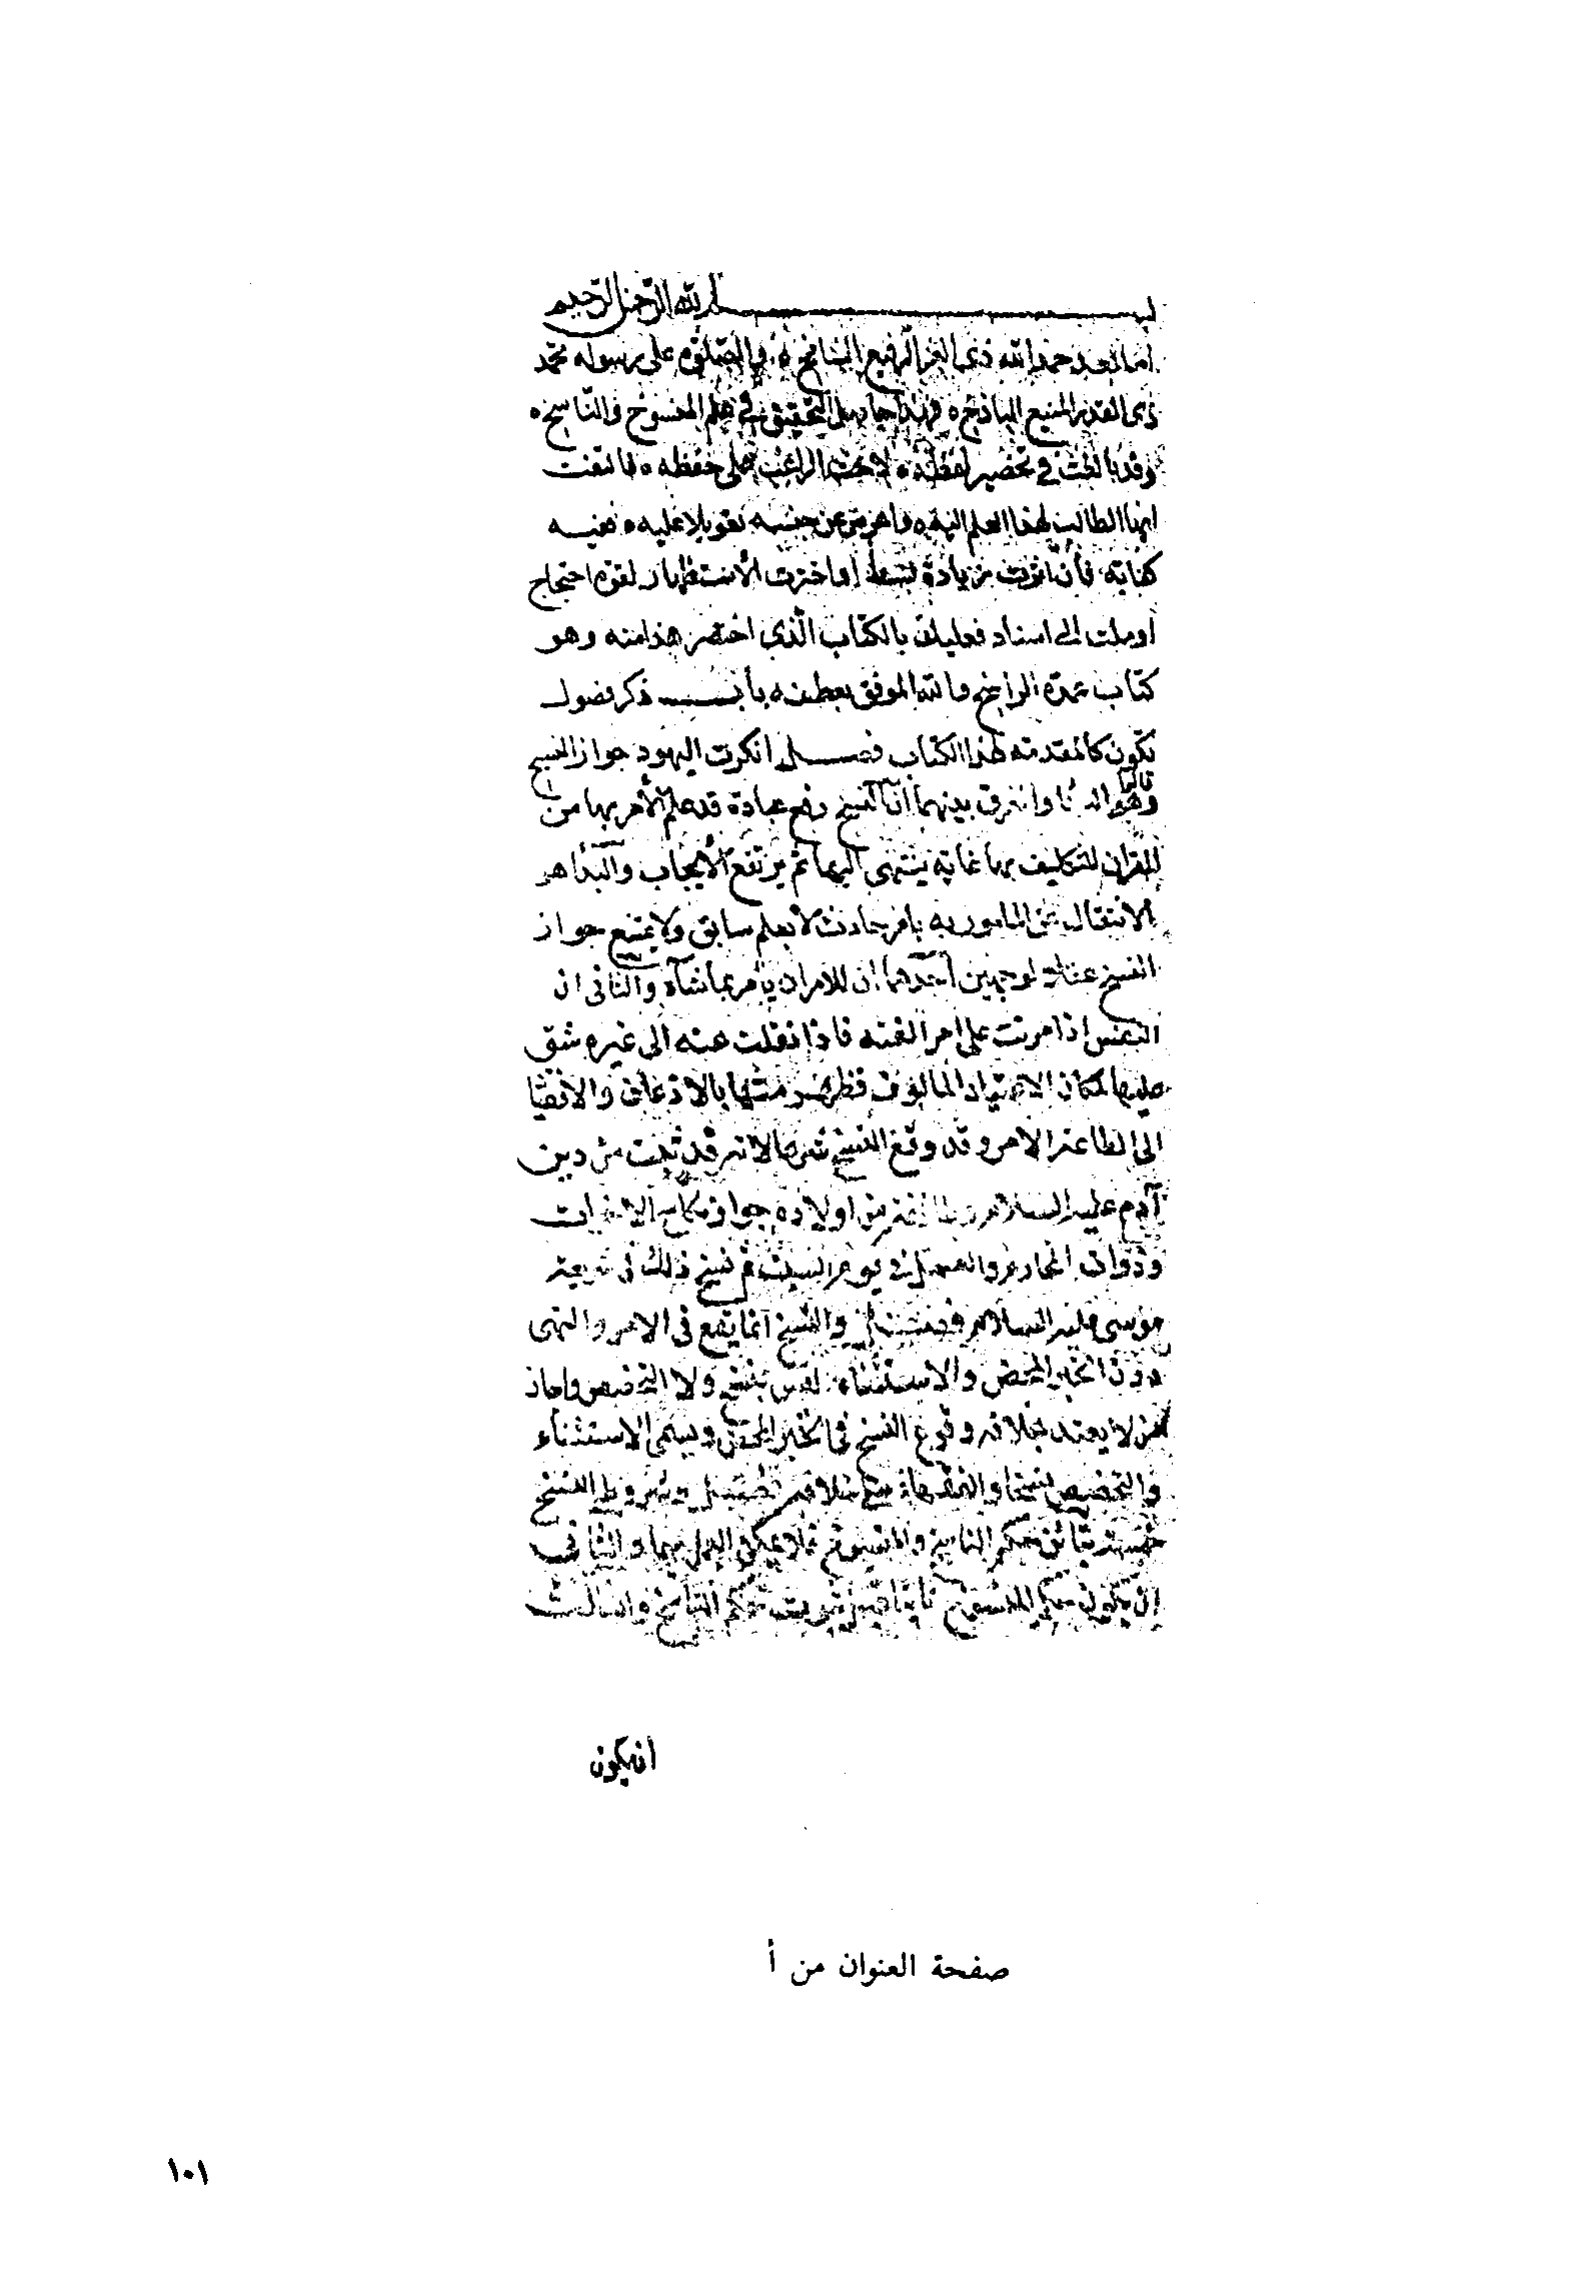 بسم الله الرحمن الرحيم
اما بعد حمد الله ذى العز الرفيع الشامخ والصلوة على رسوله محمد
ذى القدر المنيع الباذخ فهذا حاصل التحقيق في علم المنسوخ والناسخ
وقد بالغت في تحضير لفظه لاحث الراغب على حفظه فالتفت
ايها الطالب لهذا العلم اليه واعرض عن جنسه تعويلا عليه ففيه
كفاية فأن اثرت زيادة بسط او اخترت الأستظهار لقوة احتجاج
او ملت الى اسناد فعليك بالكتاب الذى اختصر هذا منه وهو
كتاب عمدة الراسخ والله الموفق بعطفه باب ذكر فصول
تكون كالمقدمة لهذا الكتاب فصل انكرت اليهود جواز النسخ
قالوا
وهو البدا والفرق بينهما أن النسخ رفع عبادة قد علم الأمر بها من
القران للتكليف بها غاية ينتهى اليها ثم يرتفع الأيجاب والبدا هو
الانتقال عن المامور به بامر حادث لا بعلم سابق ولا يمتنع جواز
النسخ عقلا لوجهين احدهما ان للامر ان يأمر بما شآء والثانى ان
النفس اذا مرنت على امر الفته فاذا نقلت عنه الى غيره شق
عليها لمكان الاعتياد المالوف فظهر منها بالاذعان والانقيا
الى الطاعة الامر وقد وقع النسخ شرعا لانه قد ثبت من دين
آدم عليه السلام وطائفة من اولاده جواز نكاح الاخوات
وذوات المحارم والعمل في يوم السبت ثم نسخ ذلك فى شريعة
موسى عليه السلام فصل والنسخ انما يقع فى الامر والنهى
دون الخبر المحض والاستثناء ليس بنسخ ولا التخصيص واجاز
من لا يعتد بخلافه وقوع النسخ فى الخبر المحض وسمى الاستثناء
والتخصيص نسخا والفقهاء على خلافه فصل شروط النسخ
خمسة حكم الناسخ والمنسوخ فلا يمكن العمل بهما والثانى
ان يكون حكم المنسوخ ثابتا قبل ثبوت حكم الناسخ والثالث
ان يكون
صفحة العنوان من أ
١٠١